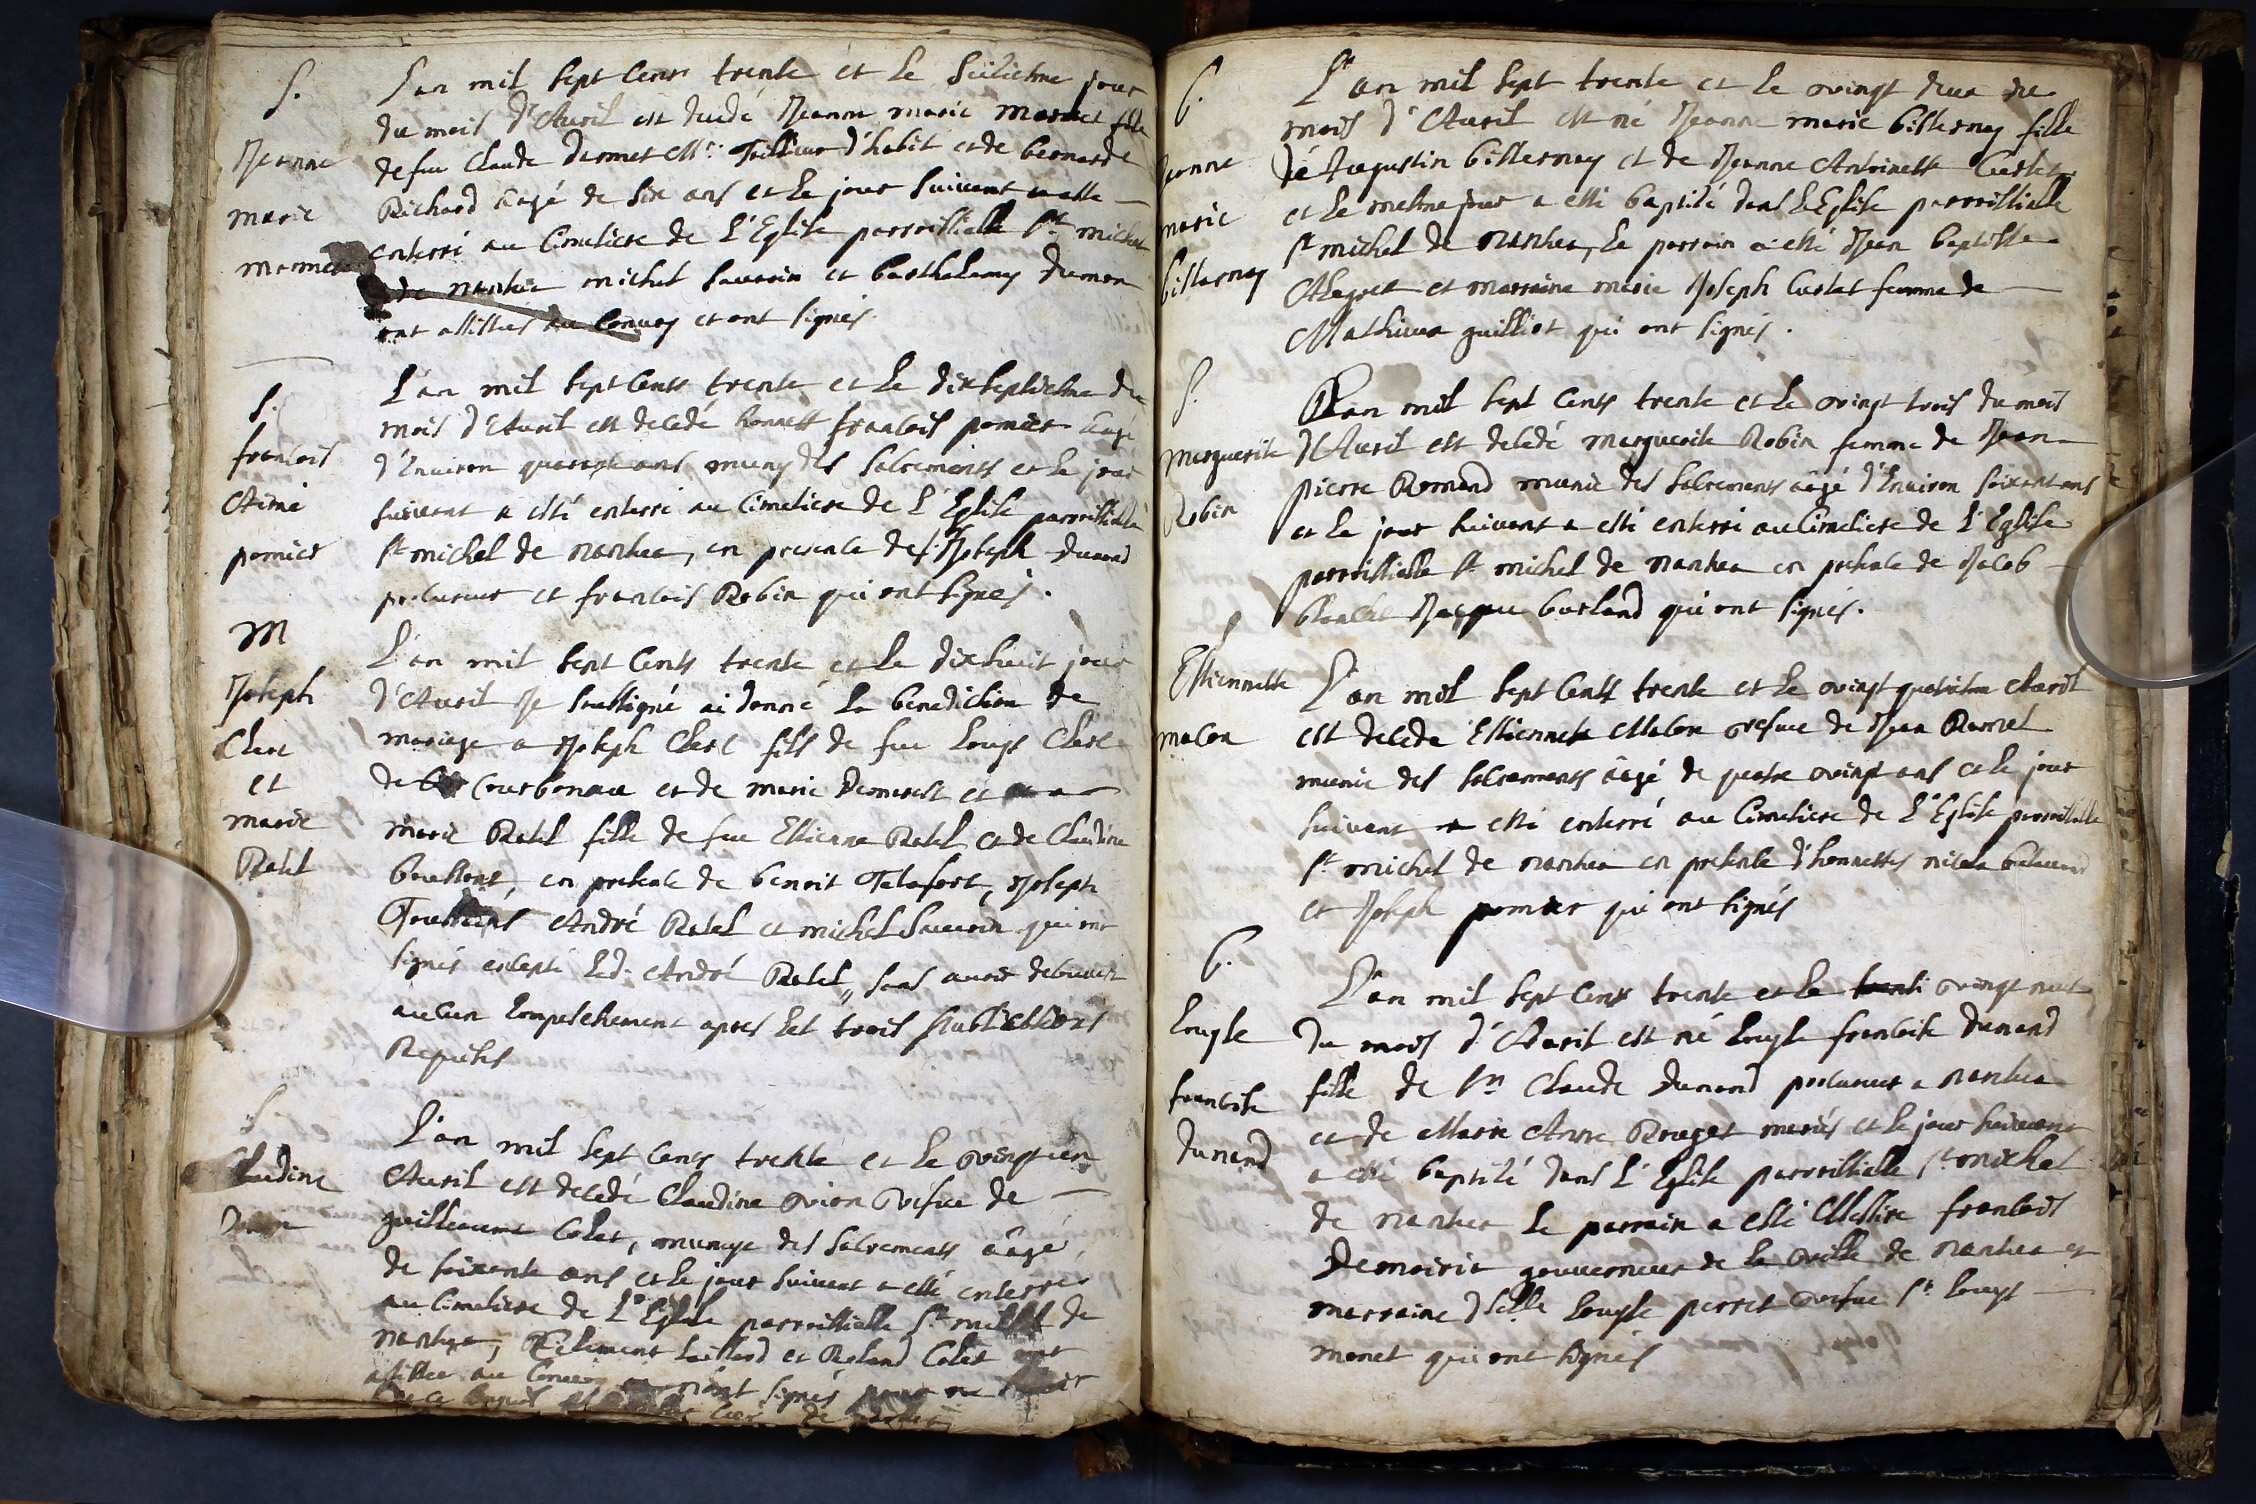 S.
Jeanne
marie
monnet
L'an mil sept cents trente et le seiziesme jour
du mois d'Auril est decedé Jeanne marie monnet fille
de feu Claude monnet Mre Tailleur d'habit et de bernarde
Richard aagé de six ans et le jour suivant a esté
enterré au Cimetiere de L'Eglise parroissialle St michel
de nantua michel Savarin et barthelemy dumon
ont assistés au Convoy et ont signés
S.
francois
Aimé
pomier
L'an mil sept Cents trente et le dixseptiesme du
mois d'Auril est decedé honneste francois pomier aagé
d'Environ quarante ans muny des sacrements et le jour
suivant a esté enterré au Cimetiere de L'Eglise parroissialle
St michel de nantua, en presence de sr. Joseph dunand
procureur et francois Robin qui ont signés.
M
Joseph
Clerc
et
marie
Ratel
L'an mil sept Cents trente et le dixhuit jour
d'Auril Je soussigné ai donné la benediction de
mariage a Joseph Clerc fils de feu Louys Clerc
de Courbonau et de marie et
marie Ratel fille de feu Estienne Ratel et de Claudine
en presence de benoit Talafort, Joseph
André Ratel et michel Savarin qui ont
signés excepté led. André Ratel, sans avoir decouvert
aucun Empeschement apres les trois publications
Requises
S
Claudine
L'an mil sept Cents trente et le vingt un
Auril est decedé Claudine vion vefue de
guilleaume Colet, munye des sacrements aagé
de soixante ans et le jour suivant a esté enterré
au Cimetiere de L'Eglise parroissialle St michel de
nantua, Climent et Roland Colet ont
assistes au Convoy n'ont signés pour ne
de ce Curé de nantua
b.
Jeanne
marie
billernay
L'an mil sept trente et le vingt deux du
mois d'Auril est né Jeanne marie billernay fille
de Augustin billernay et de Jeanne Antoinette Curlet
et le mesme jour a esté baptisé dans L'Eglise parroissialle
St michel de nantua, Le parrain a esté Jean baptiste
Alegret et marraine marie Joseph Curlet femme de
Mathieu guilliot qui ont signés.
S.
Marguerite
Robin
L'an mil sept Cents trente et le vingt trois du mois
d'Auril est decedé marguerite Robin femme de Jean
pierre Romand munie des sacrements aagé d'Environ soixant ans
et le jour suivant a esté enterré au Cimetiere de L'Eglise
parroissialle St michel de nantua en presence de Jacob
Jacque burland qui ont signés.
S
Estiennette
macon
L'an mil sept Cents trente et le vingt quatriesme Auril
est decede Estiennette Macon vefue de Jean
munie des sacrements aagé de quatre vingt ans et le jour
suivant a esté enterré au Cimetiere de L'Eglise parroissialle
St michel de nantua en presence d'honnestes
et Joseph pomier qui ont signés
b.
Louyse
francoise
dunand
L'an mil sept Cents trente et le vingt neuf
du mois d'Auril est né Louyse francoise dunand
fille de Sr Claude dunand procureur a nantua
et de Marie Anne Rouget mariés et le jour suivant
a esté baptisé dans L'Eglise parroissialle St michel
de nantua le parrain a esté Messire francois
Demoirie gouverneur de la ville de nantua et
marraine dslle Louyse perret vefue Sr Louys
monet qui ont signés